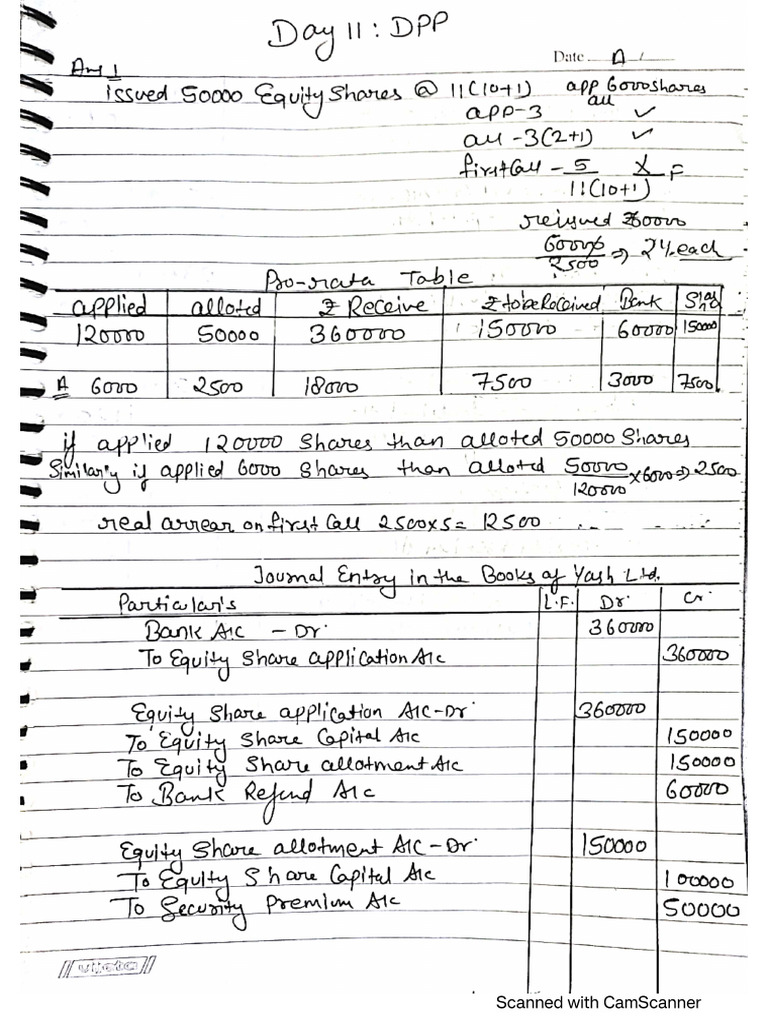 Day 11 : DPP
Date A
Ans 1
issued 50000 Equity Shares @ 11(10+1) app 6000 shares
all
app-3 ✓
all -3(2+1) ✓
first Call - 5 X F
11(10+1)
reissued 60000
60000
2500 ⇒ 24 each
Pro-rata Table
applied alloted ₹ Receive ₹ to be Received Bank
120000 50000 360000 150000 60000 150000
A 6000 2500 18000 7500 3000 7500
if applied 120000 Shares than alloted 50000 Shares
Similarly if applied 6000 Shares than alloted 50000 ×6000 ⇒ 2500
120000
real arrear on first Call 2500×5= 12500
Journal Entry in the Books of Yash Ltd.
Particular's L.F. Dr. Cr.
Bank A/C - Dr. 360000
To Equity Share application A/c 360000
Equity Share application A/C-Dr. 360000
To Equity Share Capital A/c 150000
To Equity Share allotment A/c 150000
To Bank Refund A/c 60000
Equity Share allotment A/C-Dr. 150000
To Equity Share Capital A/c 100000
To Security Premium A/c 50000
Scanned with CamScanner